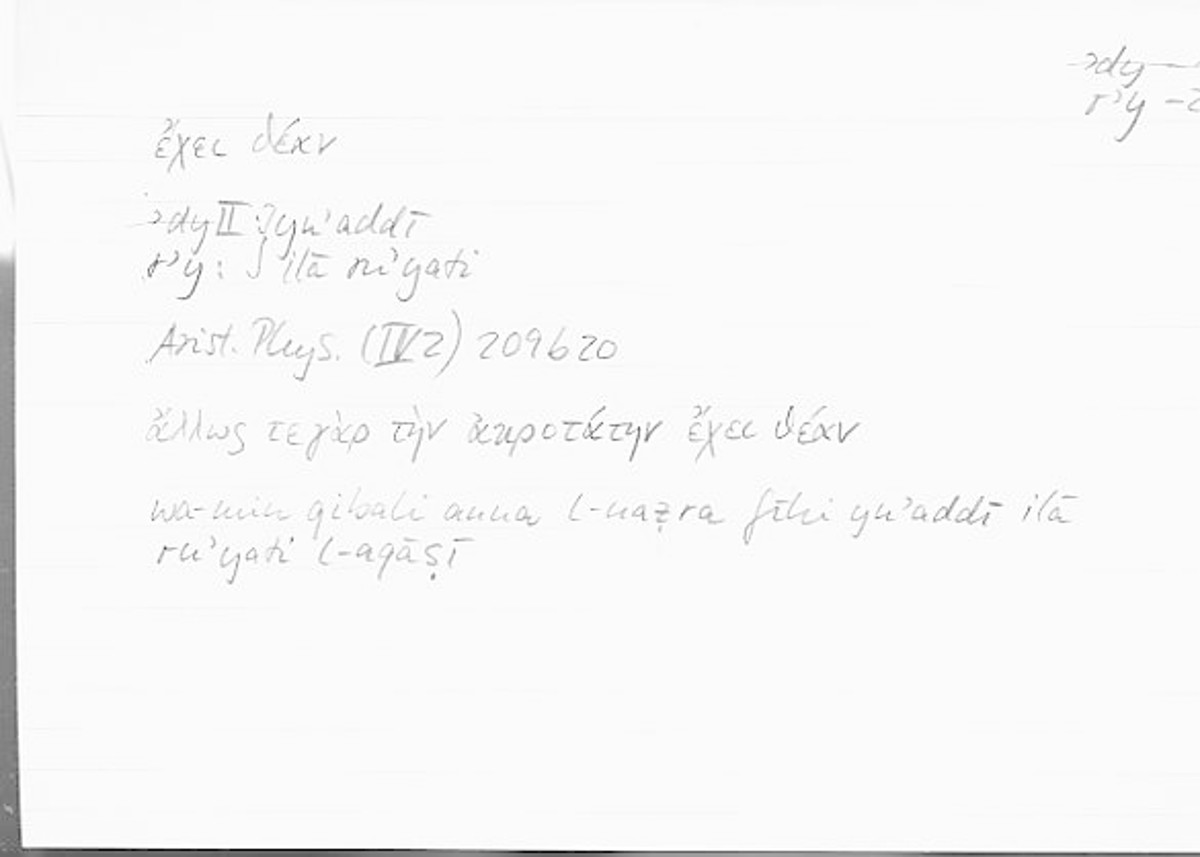 ʾdy —
rʾy – 2
ἔχει θέαν
ʾdy II : yuʾaddī
rʾy : ilā ruʾyati
Arist. Phys. (IV 2) 209b20
ἄλλως τε γὰρ τὴν ἀκροτάτην ἔχει θέαν
wa-min qibali anna l-naẓra fīhi yuʾaddī ilā
ruʾyati l-aqāṣī